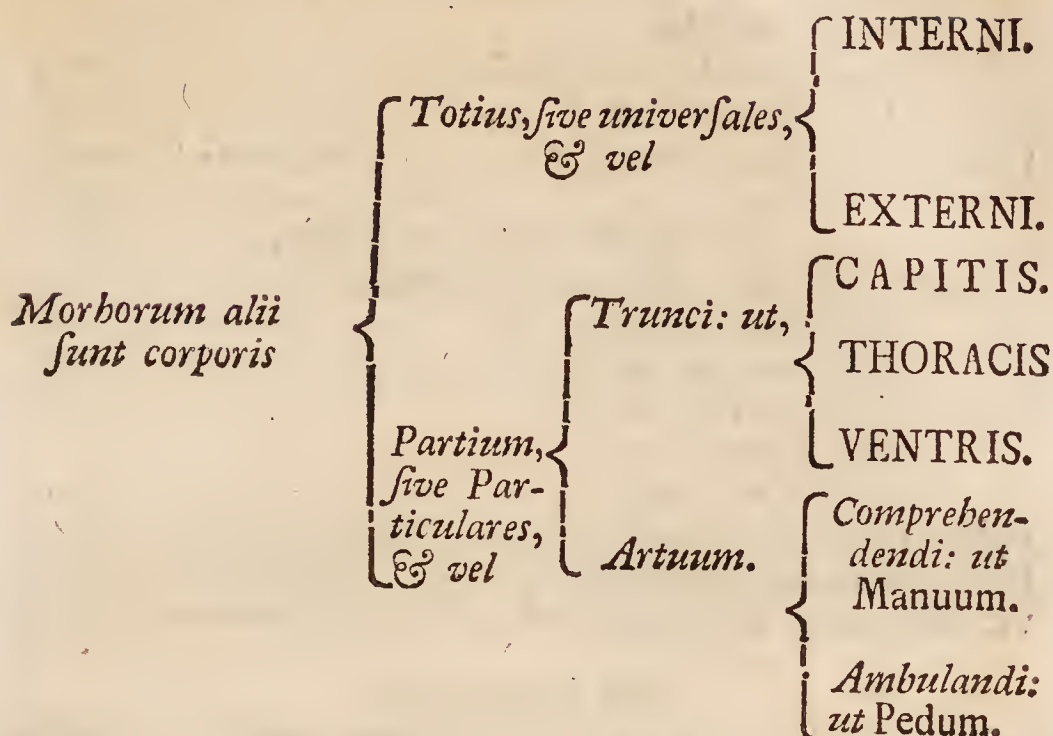 Morborum alii
ſunt corporis
Totius, ſive univerſales,
& vel
INTERNI.
EXTERNI.
Partium,
ſive Par-
ticulares,
& vel
Trunci: ut,
CAPITIS.
THORACIS
VENTRIS.
Artuum.
Comprehen-
dendi: ut
Manuum.
Ambulandi:
ut Pedum.